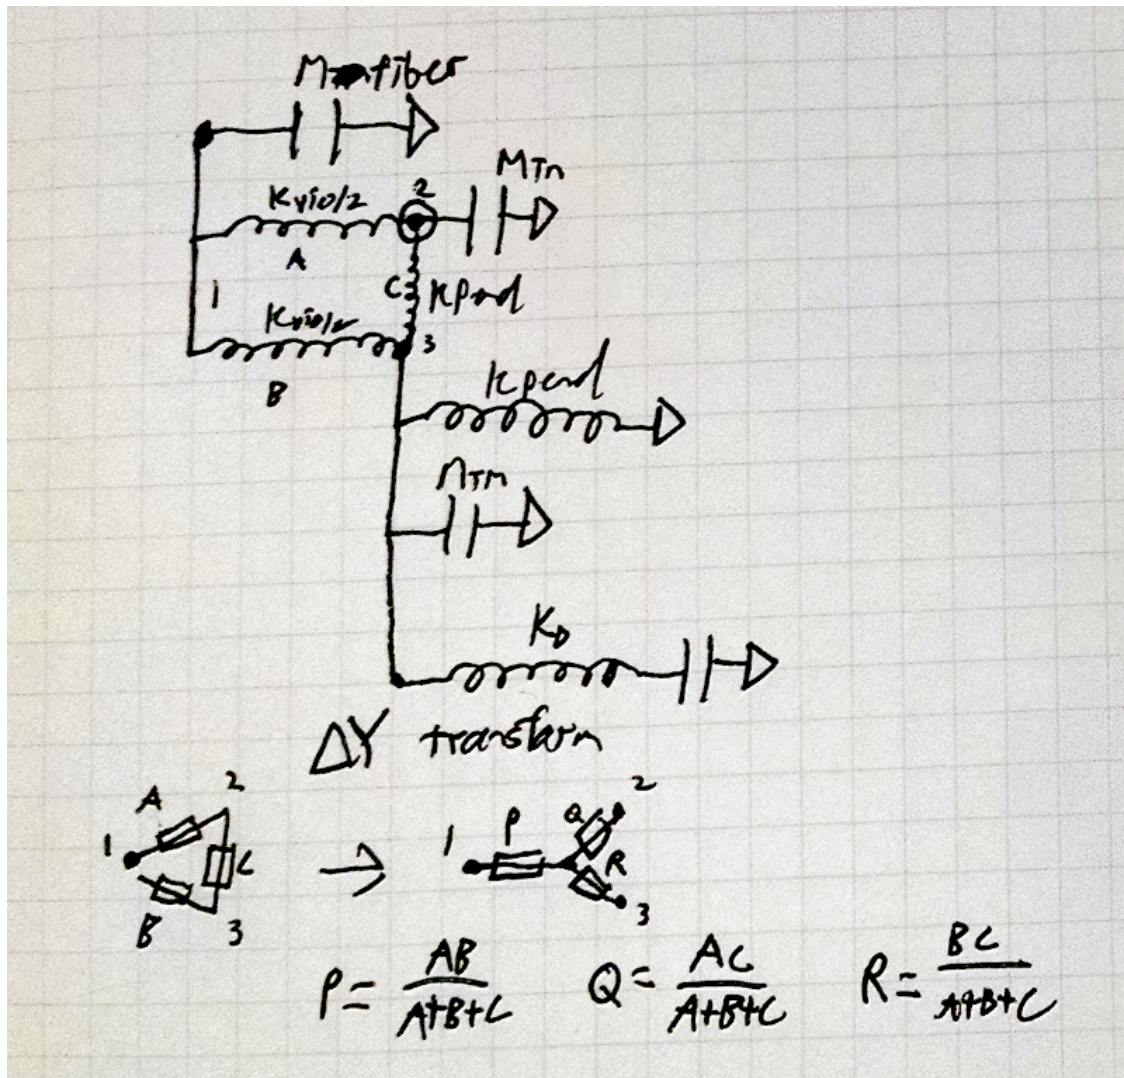 Mfiber
MTM
Kvio/2
2
A
C
Kpend
1
Kvio/2
3
B
Kpend
MTM
KD
ΔY transform
A 2 1 C B 3
→
1 P Q 2 R 3
P = AB/(A+B+C) Q = AC/(A+B+C) R = BC/(A+B+C)